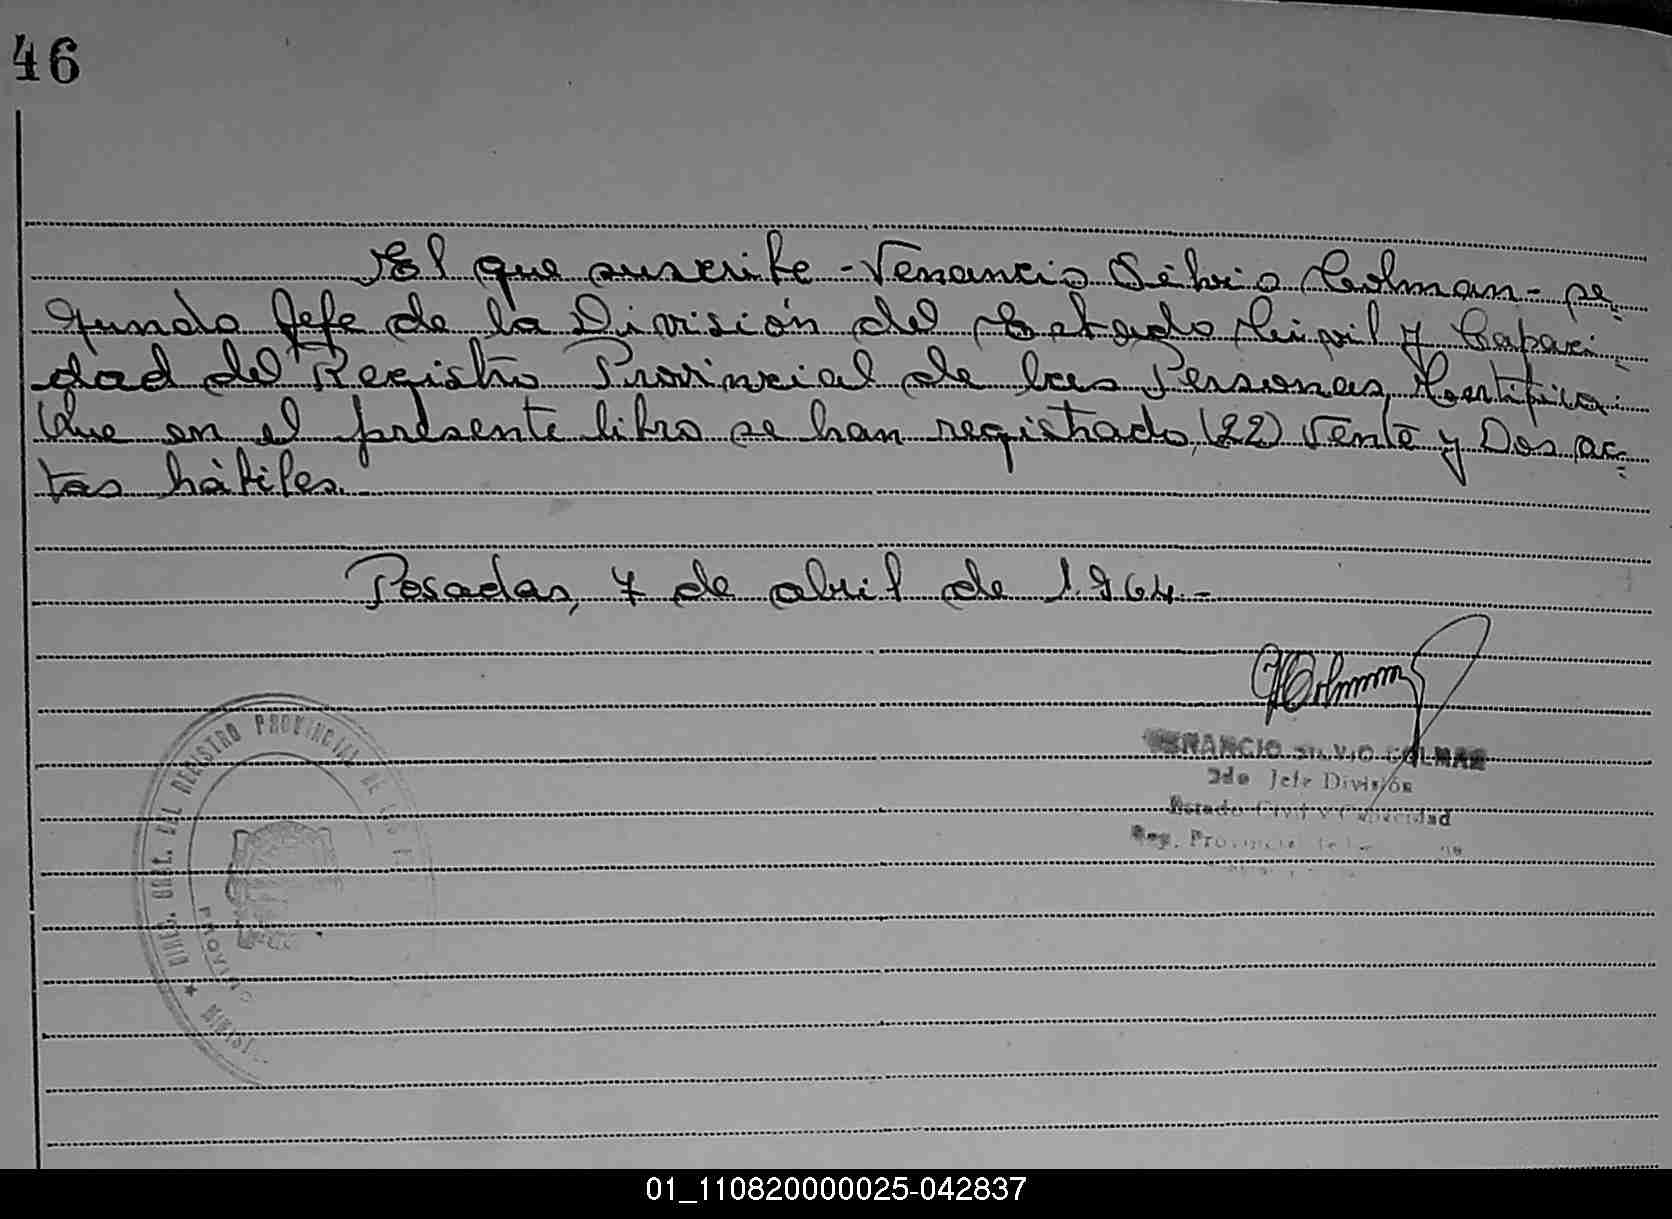 46
El que suscribe - Venancio Silvio Colman - se-
gundo Jefe de la División del Estado Civil y Capaci-
dad del Registro Provincial de las Personas, Certifica:
Que en el presente libro se han registrado, (22) Vente y Dos ac-
tas hábiles.
Posadas, 7 de abril de 1.964.-
VColman
VENANCIO SILVIO COLMAN
2do Jefe División
Estado Civil y Capacidad
Reg. Provincial de las
DIREC. GRAL. DEL REGISTRO PROVINCIAL DE LAS
PROVINC
MINIST
01_110820000025-042837